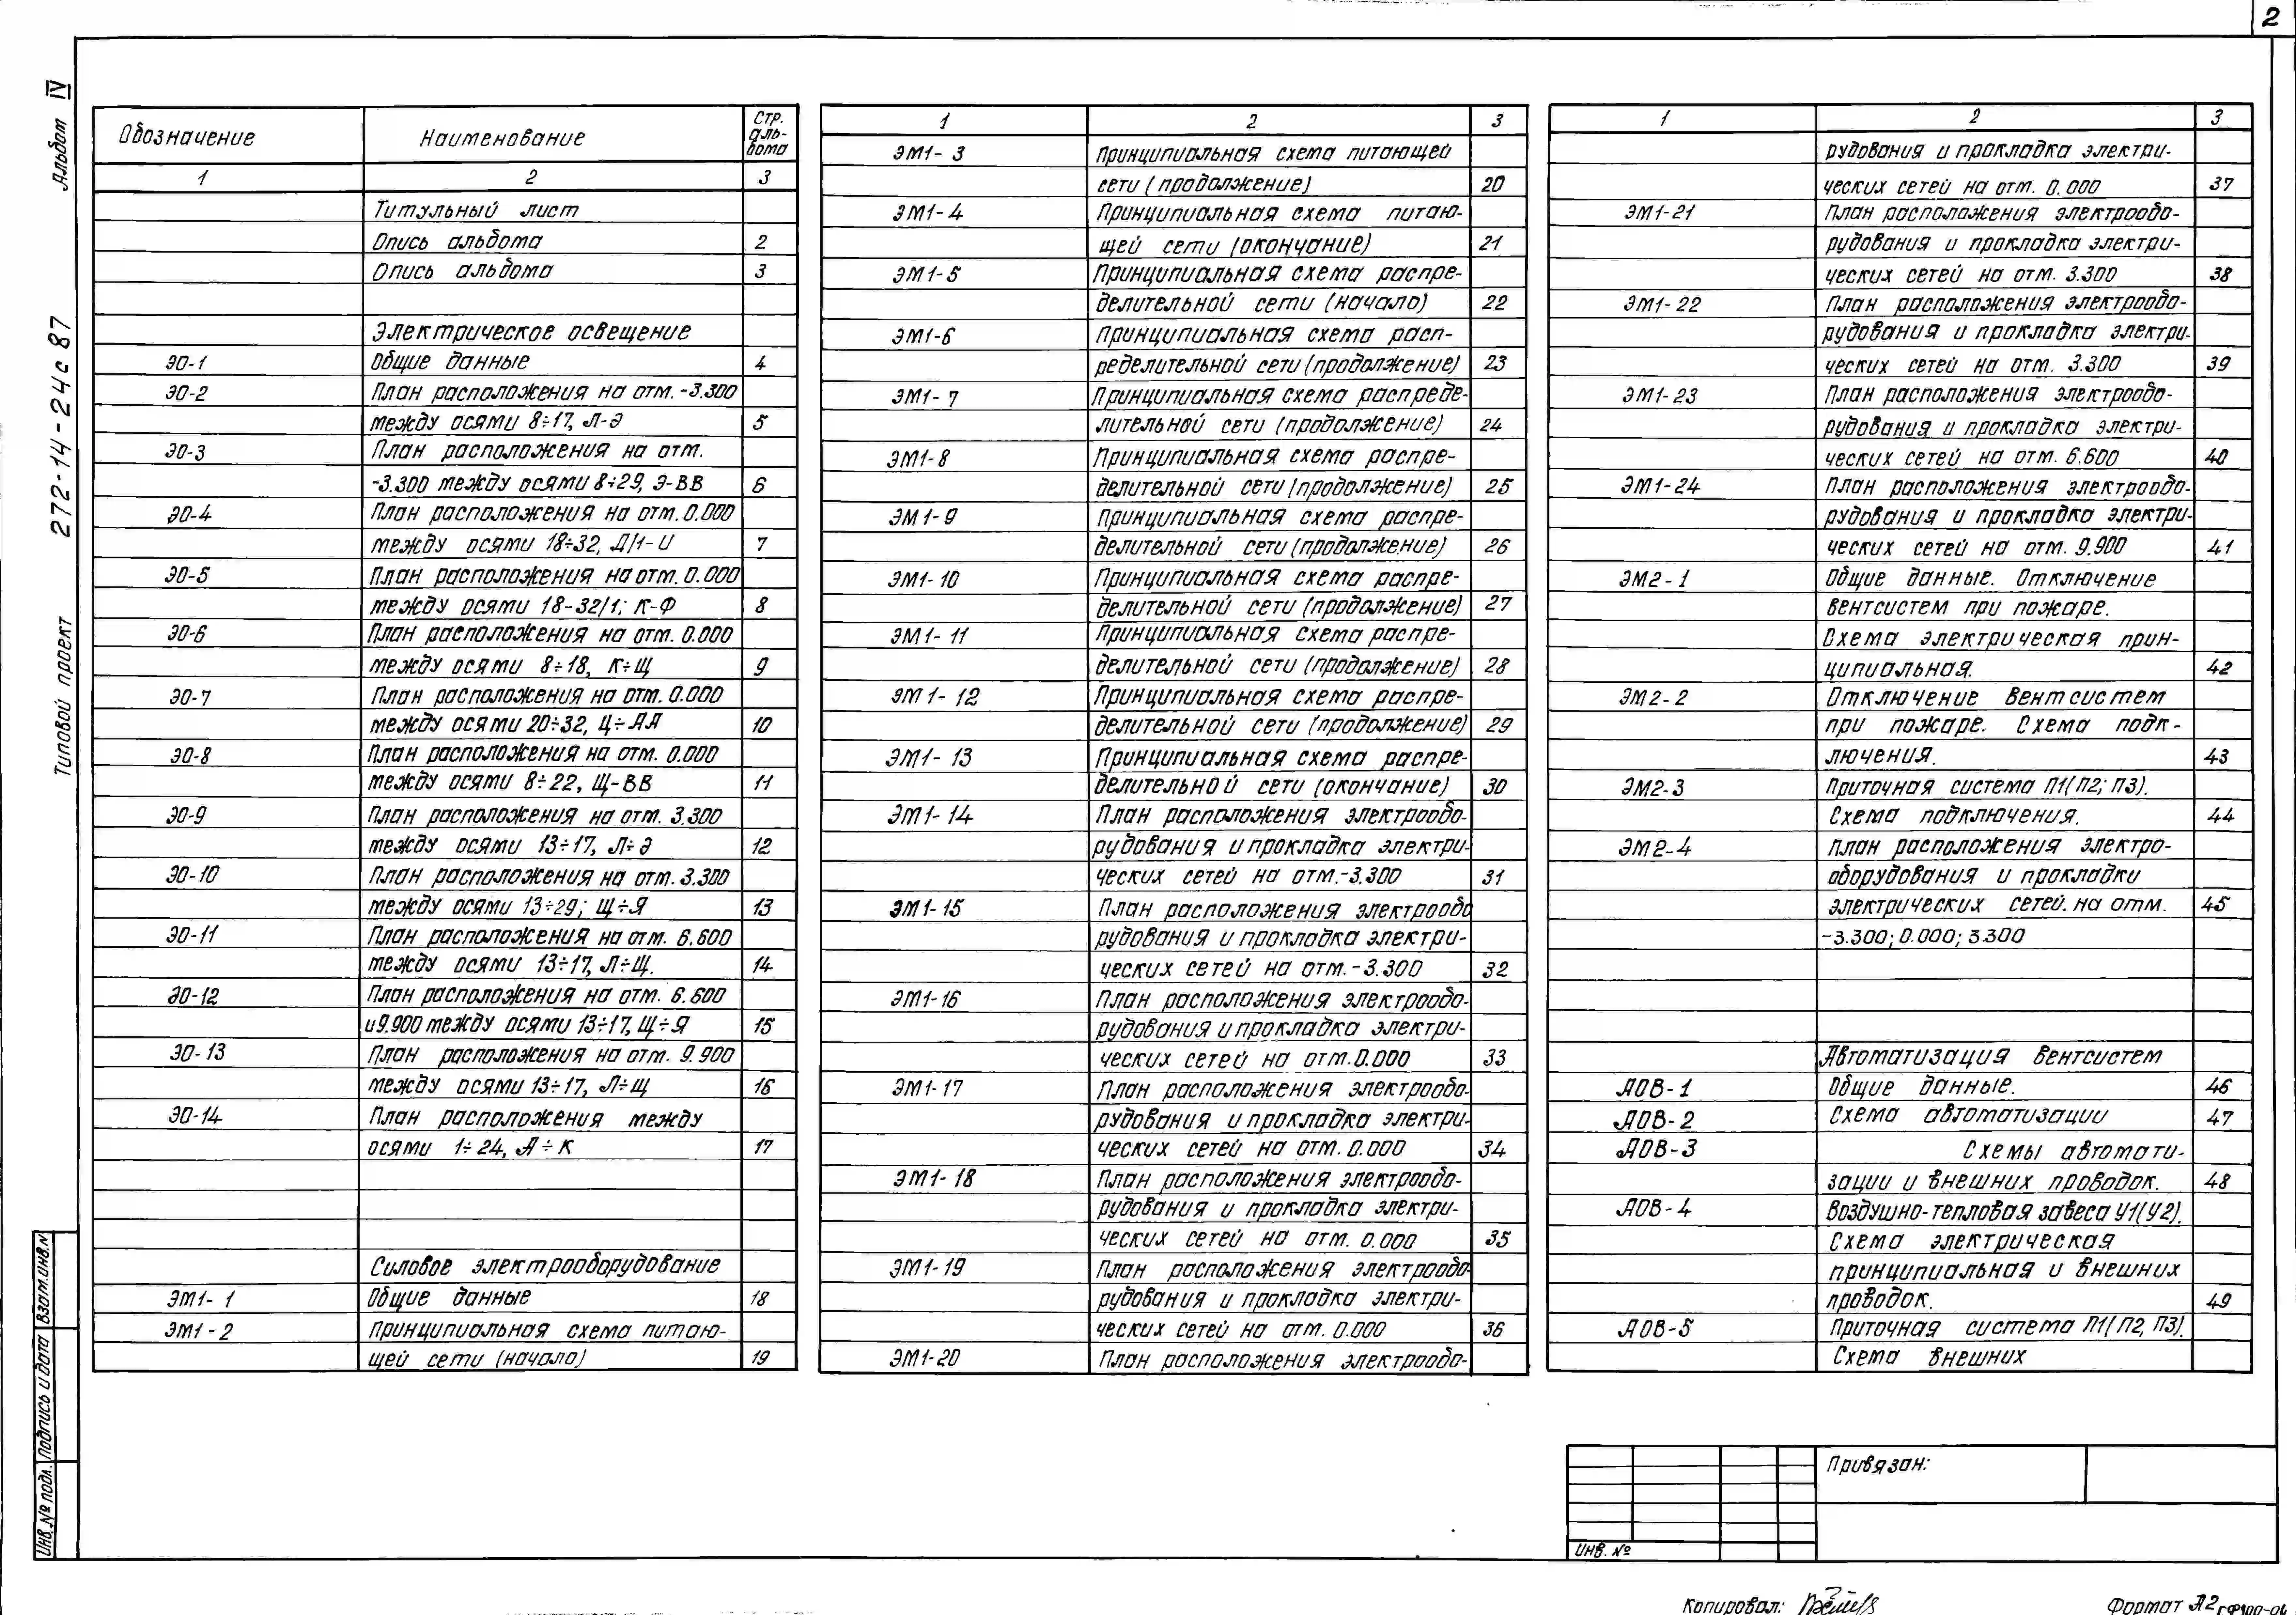 2
Альбом IV
Типовой проект 272-14-24с 87
Обозначение Наименование Стр. аль-бома
1 2 3
Титульный лист
Опись альбома 2
Опись альбома 3
Электрическое освещение
ЭО-1 Общие данные 4
ЭО-2 План расположения на отм. -3.300
между осями 8÷17, Л-Э 5
ЭО-3 План расположения на отм.
-3.300 между осями 8÷29, Э-ВВ 6
ЭО-4 План расположения на отм. 0.000
между осями 18÷32, Д/1-И 7
ЭО-5 План расположения на отм. 0.000
между осями 18-32/1; К-Ф 8
ЭО-6 План расположения на отм. 0.000
между осями 8÷18, К÷Щ 9
ЭО-7 План расположения на отм. 0.000
между осями 20÷32, Ц÷АА 10
ЭО-8 План расположения на отм. 0.000
между осями 8÷22, Щ-ВВ 11
ЭО-9 План расположения на отм. 3.300
между осями 13÷17, Л÷Э 12
ЭО-10 План расположения на отм. 3.300
между осями 13÷29; Щ÷Я 13
ЭО-11 План расположения на отм. 6.600
между осями 13÷17, Л÷Щ. 14
ЭО-12 План расположения на отм. 6.600
и 9.900 между осями 13÷17, Щ÷Я 15
ЭО-13 План расположения на отм. 9.900
между осями 13÷17, Л÷Щ 16
ЭО-14 План расположения между
осями 1÷24, А÷К 17
Силовое электрооборудование
ЭМ1-1 Общие данные 18
ЭМ1-2 Принципиальная схема питаю-
щей сети (начало) 19
1 2 3
ЭМ1-3 Принципиальная схема питающей
сети (продолжение) 20
ЭМ1-4 Принципиальная схема питаю-
щей сети (окончание) 21
ЭМ1-5 Принципиальная схема распре-
делительной сети (начало) 22
ЭМ1-6 Принципиальная схема расп-
ределительной сети (продолжение) 23
ЭМ1-7 Принципиальная схема распреде-
лительной сети (продолжение) 24
ЭМ1-8 Принципиальная схема распре-
делительной сети (продолжение) 25
ЭМ1-9 Принципиальная схема распре-
делительной сети (продолжение) 26
ЭМ1-10 Принципиальная схема распре-
делительной сети (продолжение) 27
ЭМ1-11 Принципиальная схема распре-
делительной сети (продолжение) 28
ЭМ1-12 Принципиальная схема распре-
делительной сети (продолжение) 29
ЭМ1-13 Принципиальная схема распре-
делительной сети (окончание) 30
ЭМ1-14 План расположения электрообо-
рудования и прокладка электри-
ческих сетей на отм.-3.300 31
ЭМ1-15 План расположения электрообо
рудования и прокладка электри-
ческих сетей на отм.-3.300 32
ЭМ1-16 План расположения электрообо-
рудования и прокладка электри-
ческих сетей на отм.0.000 33
ЭМ1-17 План расположения электрообо-
рудования и прокладка электри-
ческих сетей на отм. 0.000 34
ЭМ1-18 План расположения электрообо-
рудования и прокладка электри-
ческих сетей на отм. 0.000 35
ЭМ1-19 План расположения электрообо-
рудования и прокладка электри-
ческих сетей на отм. 0.000 36
ЭМ1-20 План расположения электрообо-
1 2 3
рудования и прокладка электри-
ческих сетей на отм. 0.000 37
ЭМ1-21 План расположения электрообо-
рудования и прокладка электри-
ческих сетей на отм. 3.300 38
ЭМ1-22 План расположения электрообо-
рудования и прокладка электри-
ческих сетей на отм. 3.300 39
ЭМ1-23 План расположения электрообо-
рудования и прокладка электри-
ческих сетей на отм. 6.600 40
ЭМ1-24 План расположения электрообо-
рудования и прокладка электри-
ческих сетей на отм. 9.900 41
ЭМ2-1 Общие данные. Отключение
вентсистем при пожаре.
Схема электрическая прин-
ципиальная. 42
ЭМ2-2 Отключение вентсистем
при пожаре. Схема подк-
лючения. 43
ЭМ2-3 Приточная система П1(П2; П3).
Схема подключения. 44
ЭМ2-4 План расположения электро-
оборудования и прокладки
электрических сетей. на отм. 45
-3.300; 0.000; 3.300
Автоматизация вентсистем
АОВ-1 Общие данные. 46
АОВ-2 Схема автоматизации 47
АОВ-3 Схемы автомати-
зации и внешних проводок. 48
АОВ-4 Воздушно-тепловая завеса У1(У2).
Схема электрическая
принципиальная и внешних
проводок. 49
АОВ-5 Приточная система П1(П2, П3).
Схема внешних
Инв.№ подл. Подпись и дата Взам.инв.N
Привязан:
Инв. №
Копировал:
Формат А2